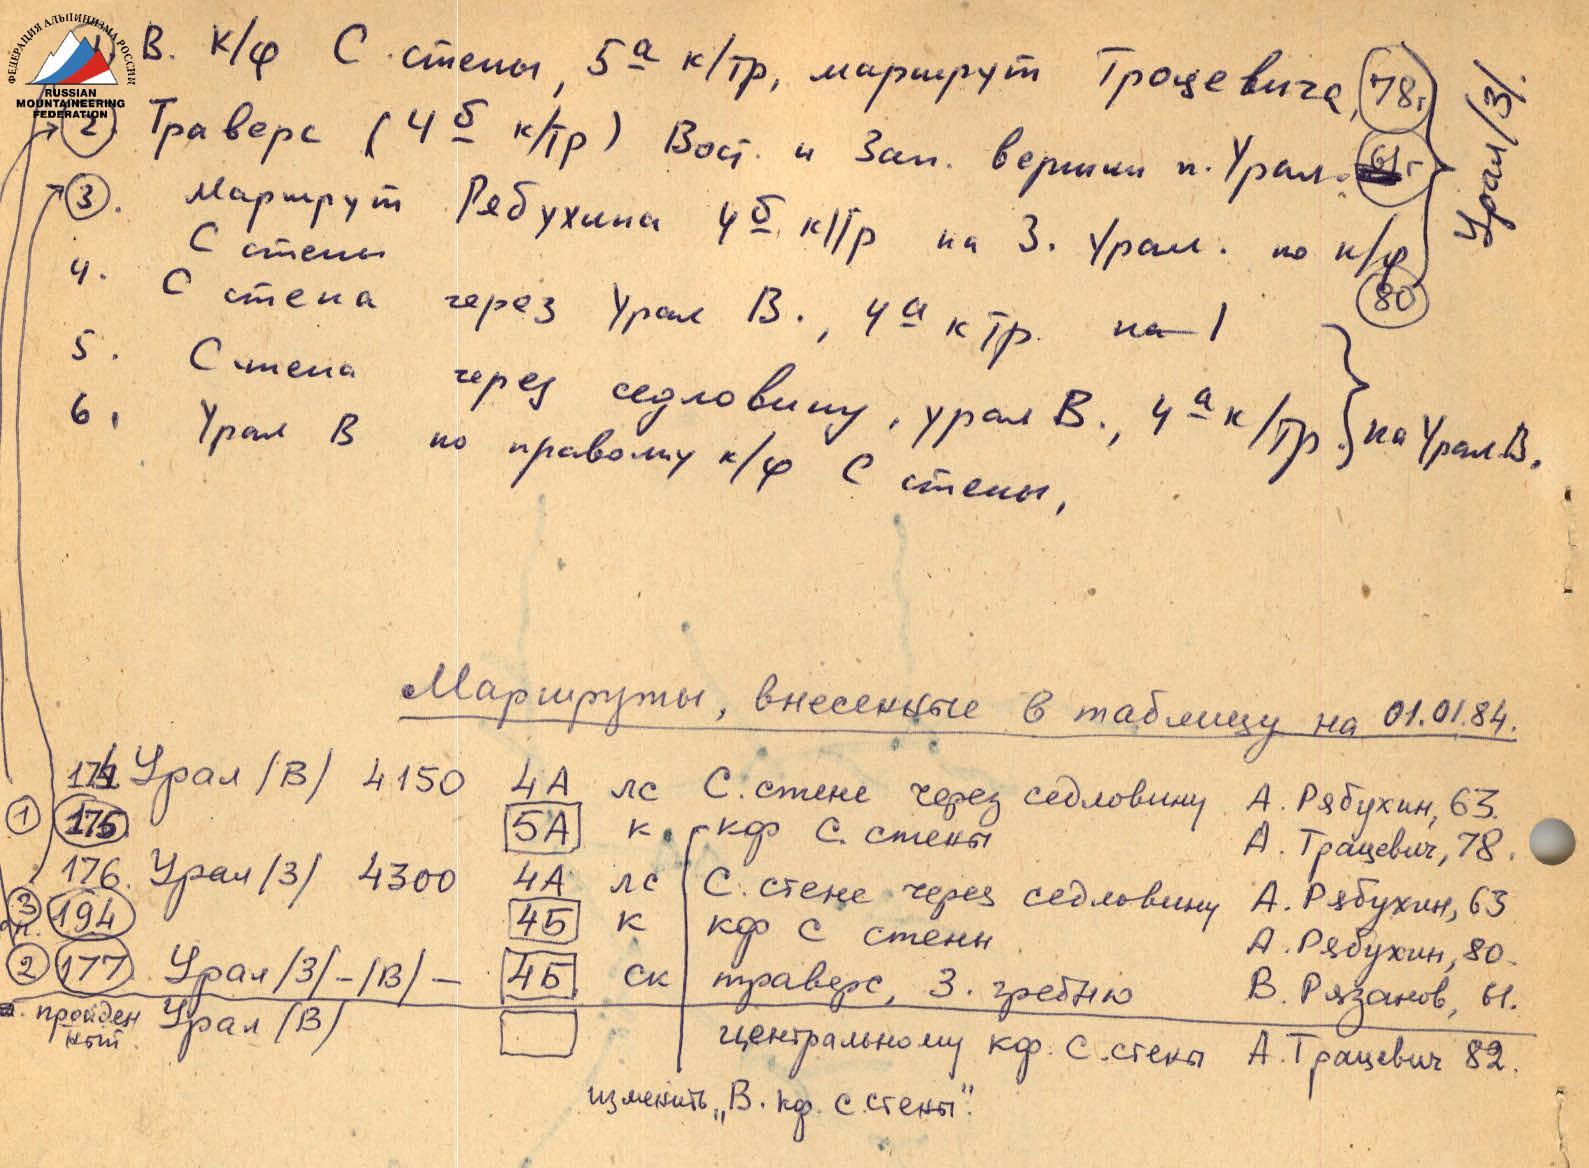 ФЕДЕРАЦИЯ АЛЬПИНИЗМА РОССИИ
RUSSIAN
MOUNTAINEERING
FEDERATION
1) В. к/ф С. стены, 5а к/тр, маршрут Троцевича, 78г.
2. Траверс (4б к/тр) Вост. и Зап. вершин п. Урал. 61г
3. Маршрут Рябухина 4б к/тр на З. Урал. по к/ф
С стены 80
Урал /З/.
4. С стена через Урал В., 4а к тр. на
5. С. стена через седловину, урал В., 4а к/тр. на Урал В.
6. Урал В по правому к/ф С стены,
Маршруты, внесенные в таблицу на 01.01.84.
174 Урал /В/ 4150 4А лс С. стене через седловину А. Рябухин, 63.
1 175 5А к. кф С. стены А. Трацевич, 78.
176. Урал /З/ 4300 4А лс С. стене через седловину А. Рябухин, 63
3 194 4Б к кф С стены А. Рябухин, 80.
2 177 Урал /З/ - /В/ - 4Б ск траверс, З. гребню В. Рязанов, 61.
пройден ный. Урал /В/ центральному кф. С. стены А. Трацевич 82.
изменить „В. кф. С. стены".